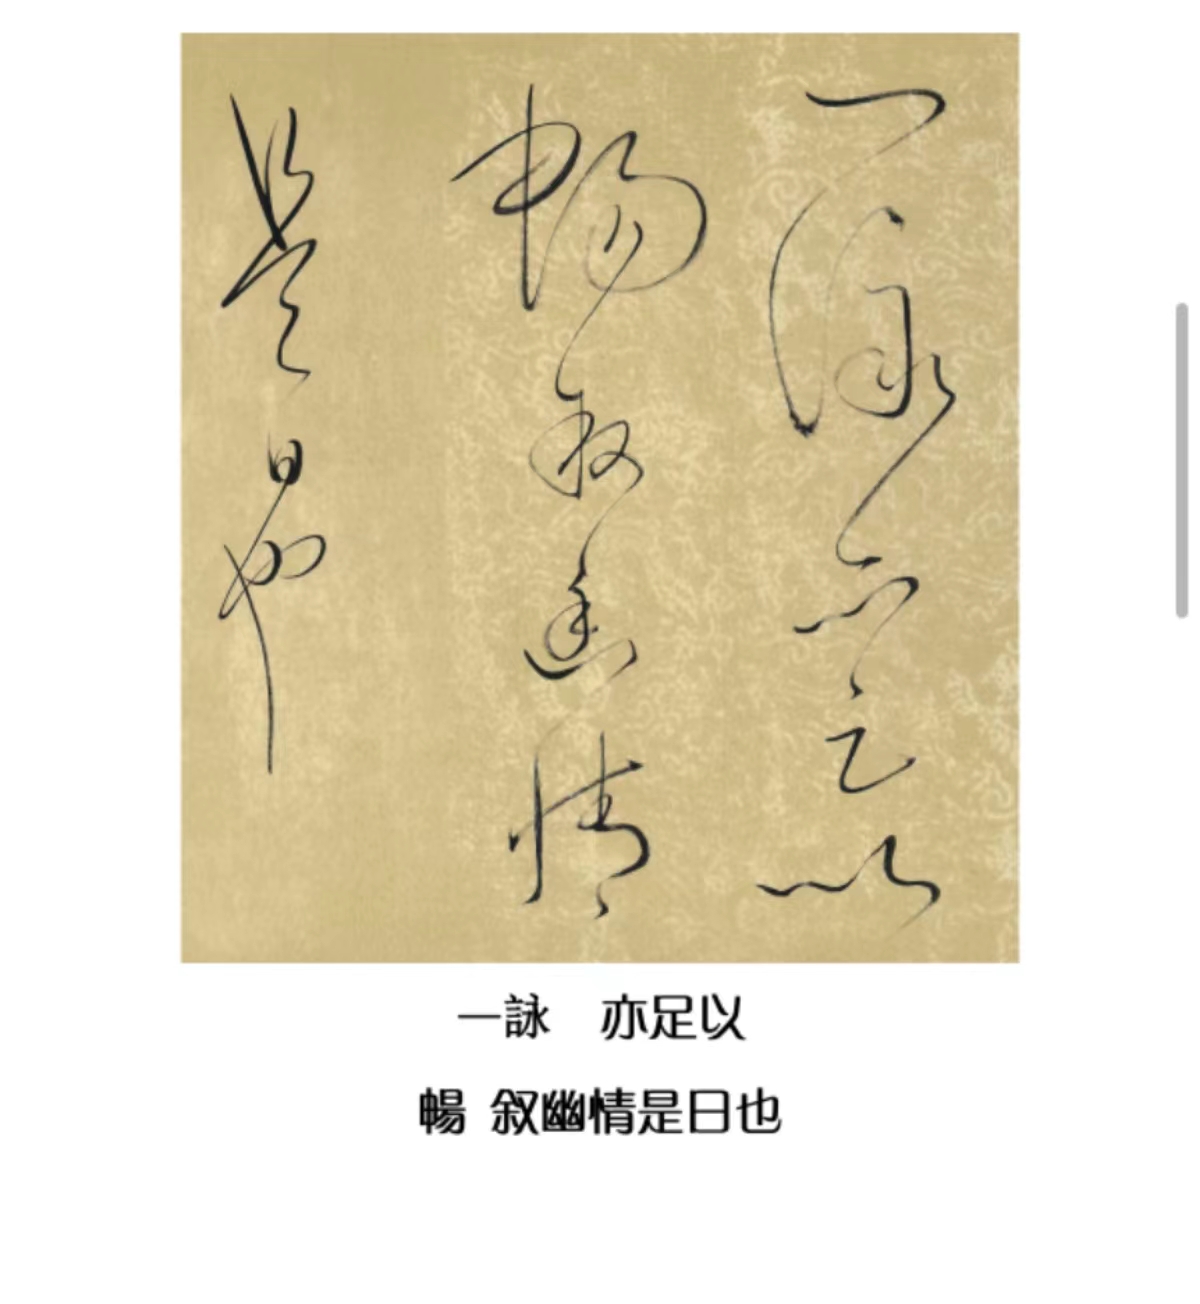 一詠亦足以
暢叙幽情
是日也
一詠 亦足以
暢 叙幽情是日也